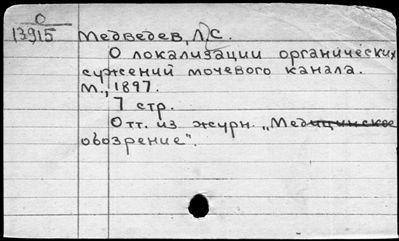 О
13915
Медведев, Л. С.
О локализации органических
сужений мочевого канала.
М., 1897.
7 стр.
Отт. из журн. „Медицинское
обозрение".